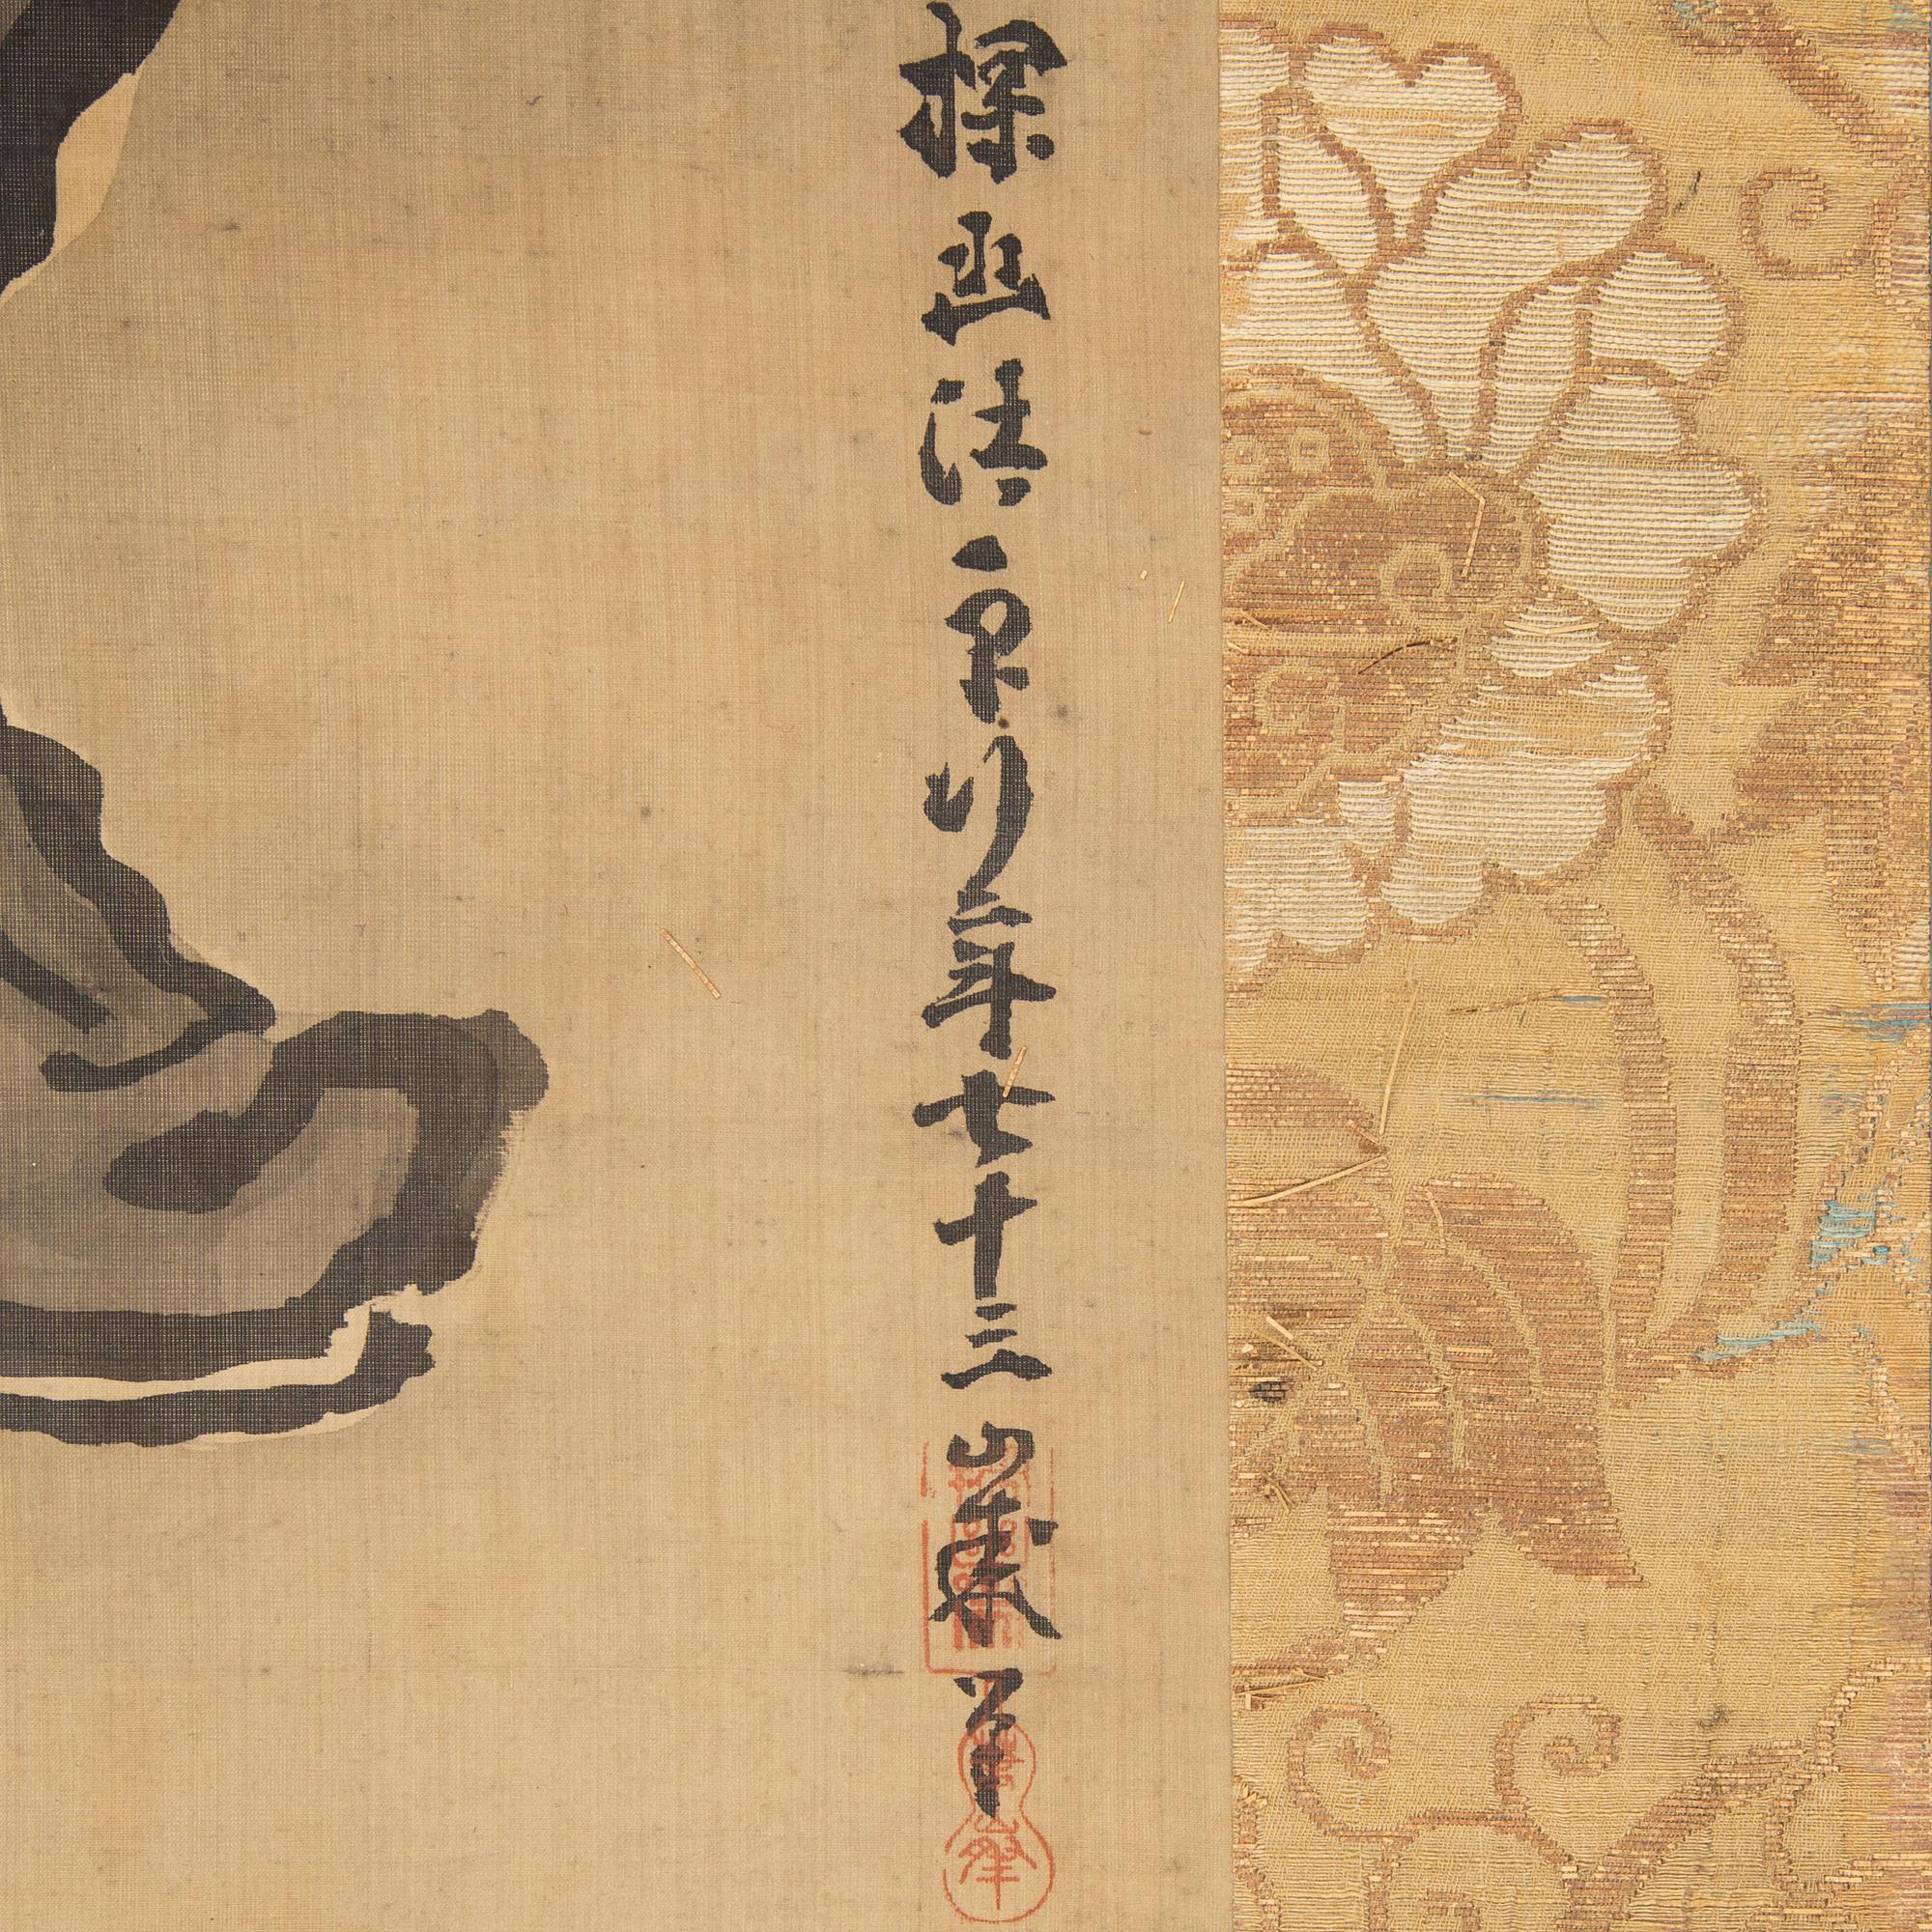 探幽法印行年七十三歳筆